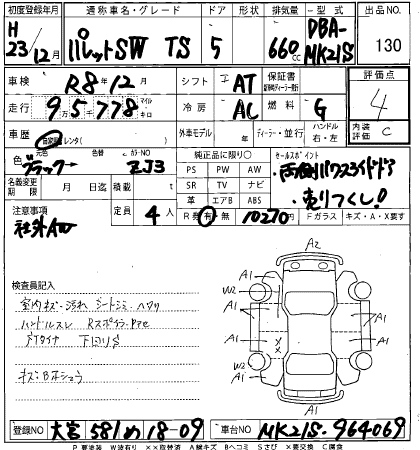 初度登録年月 通称車名・グレード ドア 形状 排気量 型式 出品NO
H 23/12月 パレットSW TS 5 660cc DBA-MK21S 130
車検 R8年12月 シフト IAT 保証書 評価点
走行 95778 マイル キロ 冷房 AC 燃料 G 4
車歴 自家用 レンタ( ) 外車モデル 年 ディーラー・並行 ハンドル 右・左 内装 C
色 元色 ブラック 色替 カラーNO ZJ3 純正品に限り○ セールスポイント
PS PW AW 両側パワースライドドア
名義変更期限 月 日迄 積載 t SR TV ナビ 売りつくし!
革 エアB ABS
注意事項 社外AW 定員 4人 R券 有 無 10270円 Fガラス キズ・A・X要す
検査員記入
室内キズ・汚れ シートシミ・ハワリ
ハンドルスレ Rスポイラ
下回りS
キズ・B
A2
A1 A1
W2
A1 A1
A1 A1
W2
A1 A1
A1
登録NO 大宮581め18-09 車台NO MK21S-964069
P要塗装 W波有り ××取替済 A線キズ Bヘコミ Sさび ×要交換 C腐食